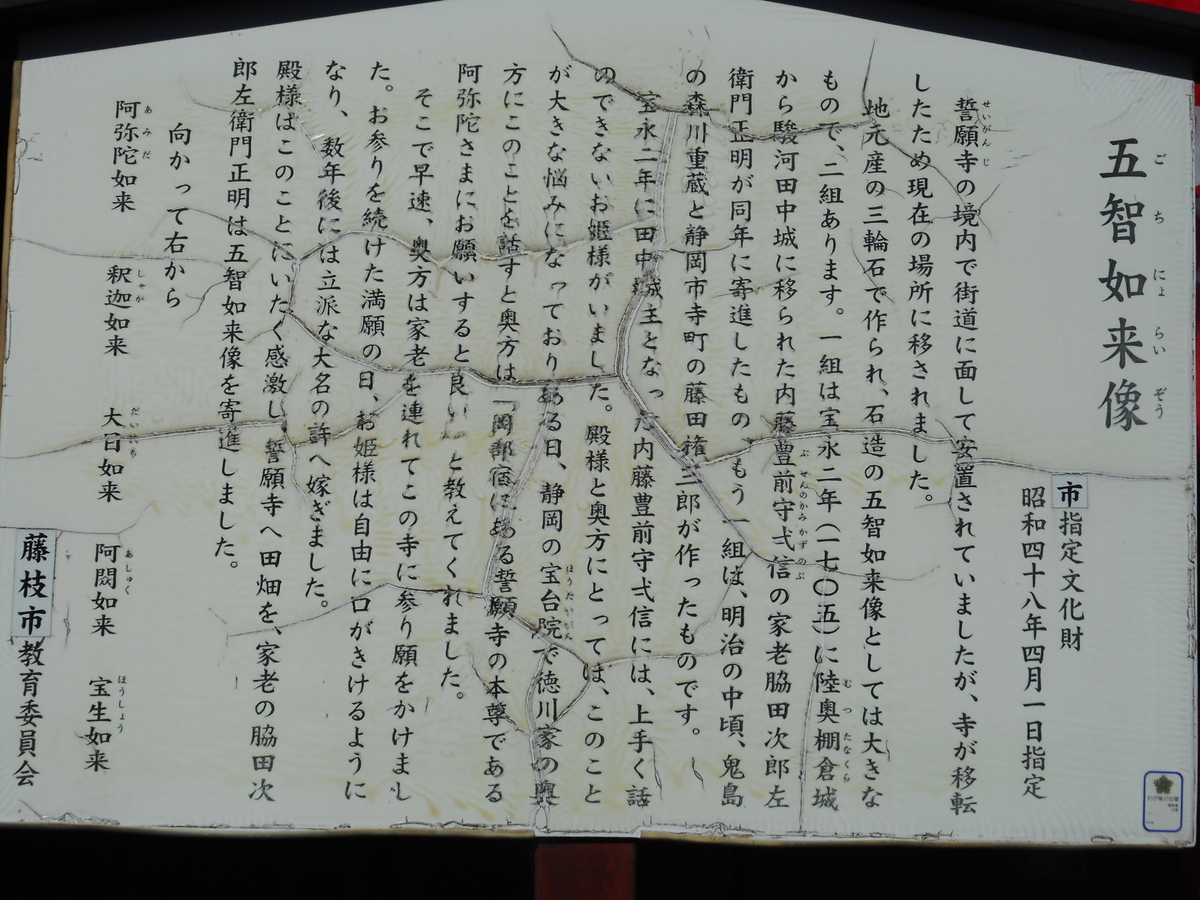 五智如来像
市指定文化財
昭和四十八年四月一日指定
誓願寺の境内で街道に面して安置されていましたが、寺が移転
したため現在の場所に移されました。
地元産の三輪石で作られ、石造の五智如来像としては大きな
もので、二組あります。一組は宝永二年（一七〇五）に陸奥棚倉城
から駿河田中城に移られた内藤豊前守弌信の家老脇田次郎左
衛門正明が同年に寄進したもの、もう一組は、明治の中頃、鬼島
の森川重蔵と静岡市寺町の藤田権三郎が作ったものです。
宝永二年に田中城主となった内藤豊前守弌信には、上手く話
のできないお姫様がいました。殿様と奥方にとっては、このこと
が大きな悩みになっておりある日、静岡の宝台院で徳川家の奥
方にこのことを話すと奥方は「岡部宿にある誓願寺の本尊である
阿弥陀さまにお願いすると良い」と教えてくれました。
そこで早速、奥方は家老を連れてこの寺に参り願をかけまし
た。お参りを続けた満願の日、お姫様は自由に口がきけるように
なり、数年後には立派な大名の許へ嫁ぎました。
殿様はこのことにいたく感激し、誓願寺へ田畑を、家老の脇田次
郎左衛門正明は五智如来像を寄進しました。
向かって右から
阿弥陀如来　釈迦如来　大日如来　阿閦如来　宝生如来
藤枝市教育委員会